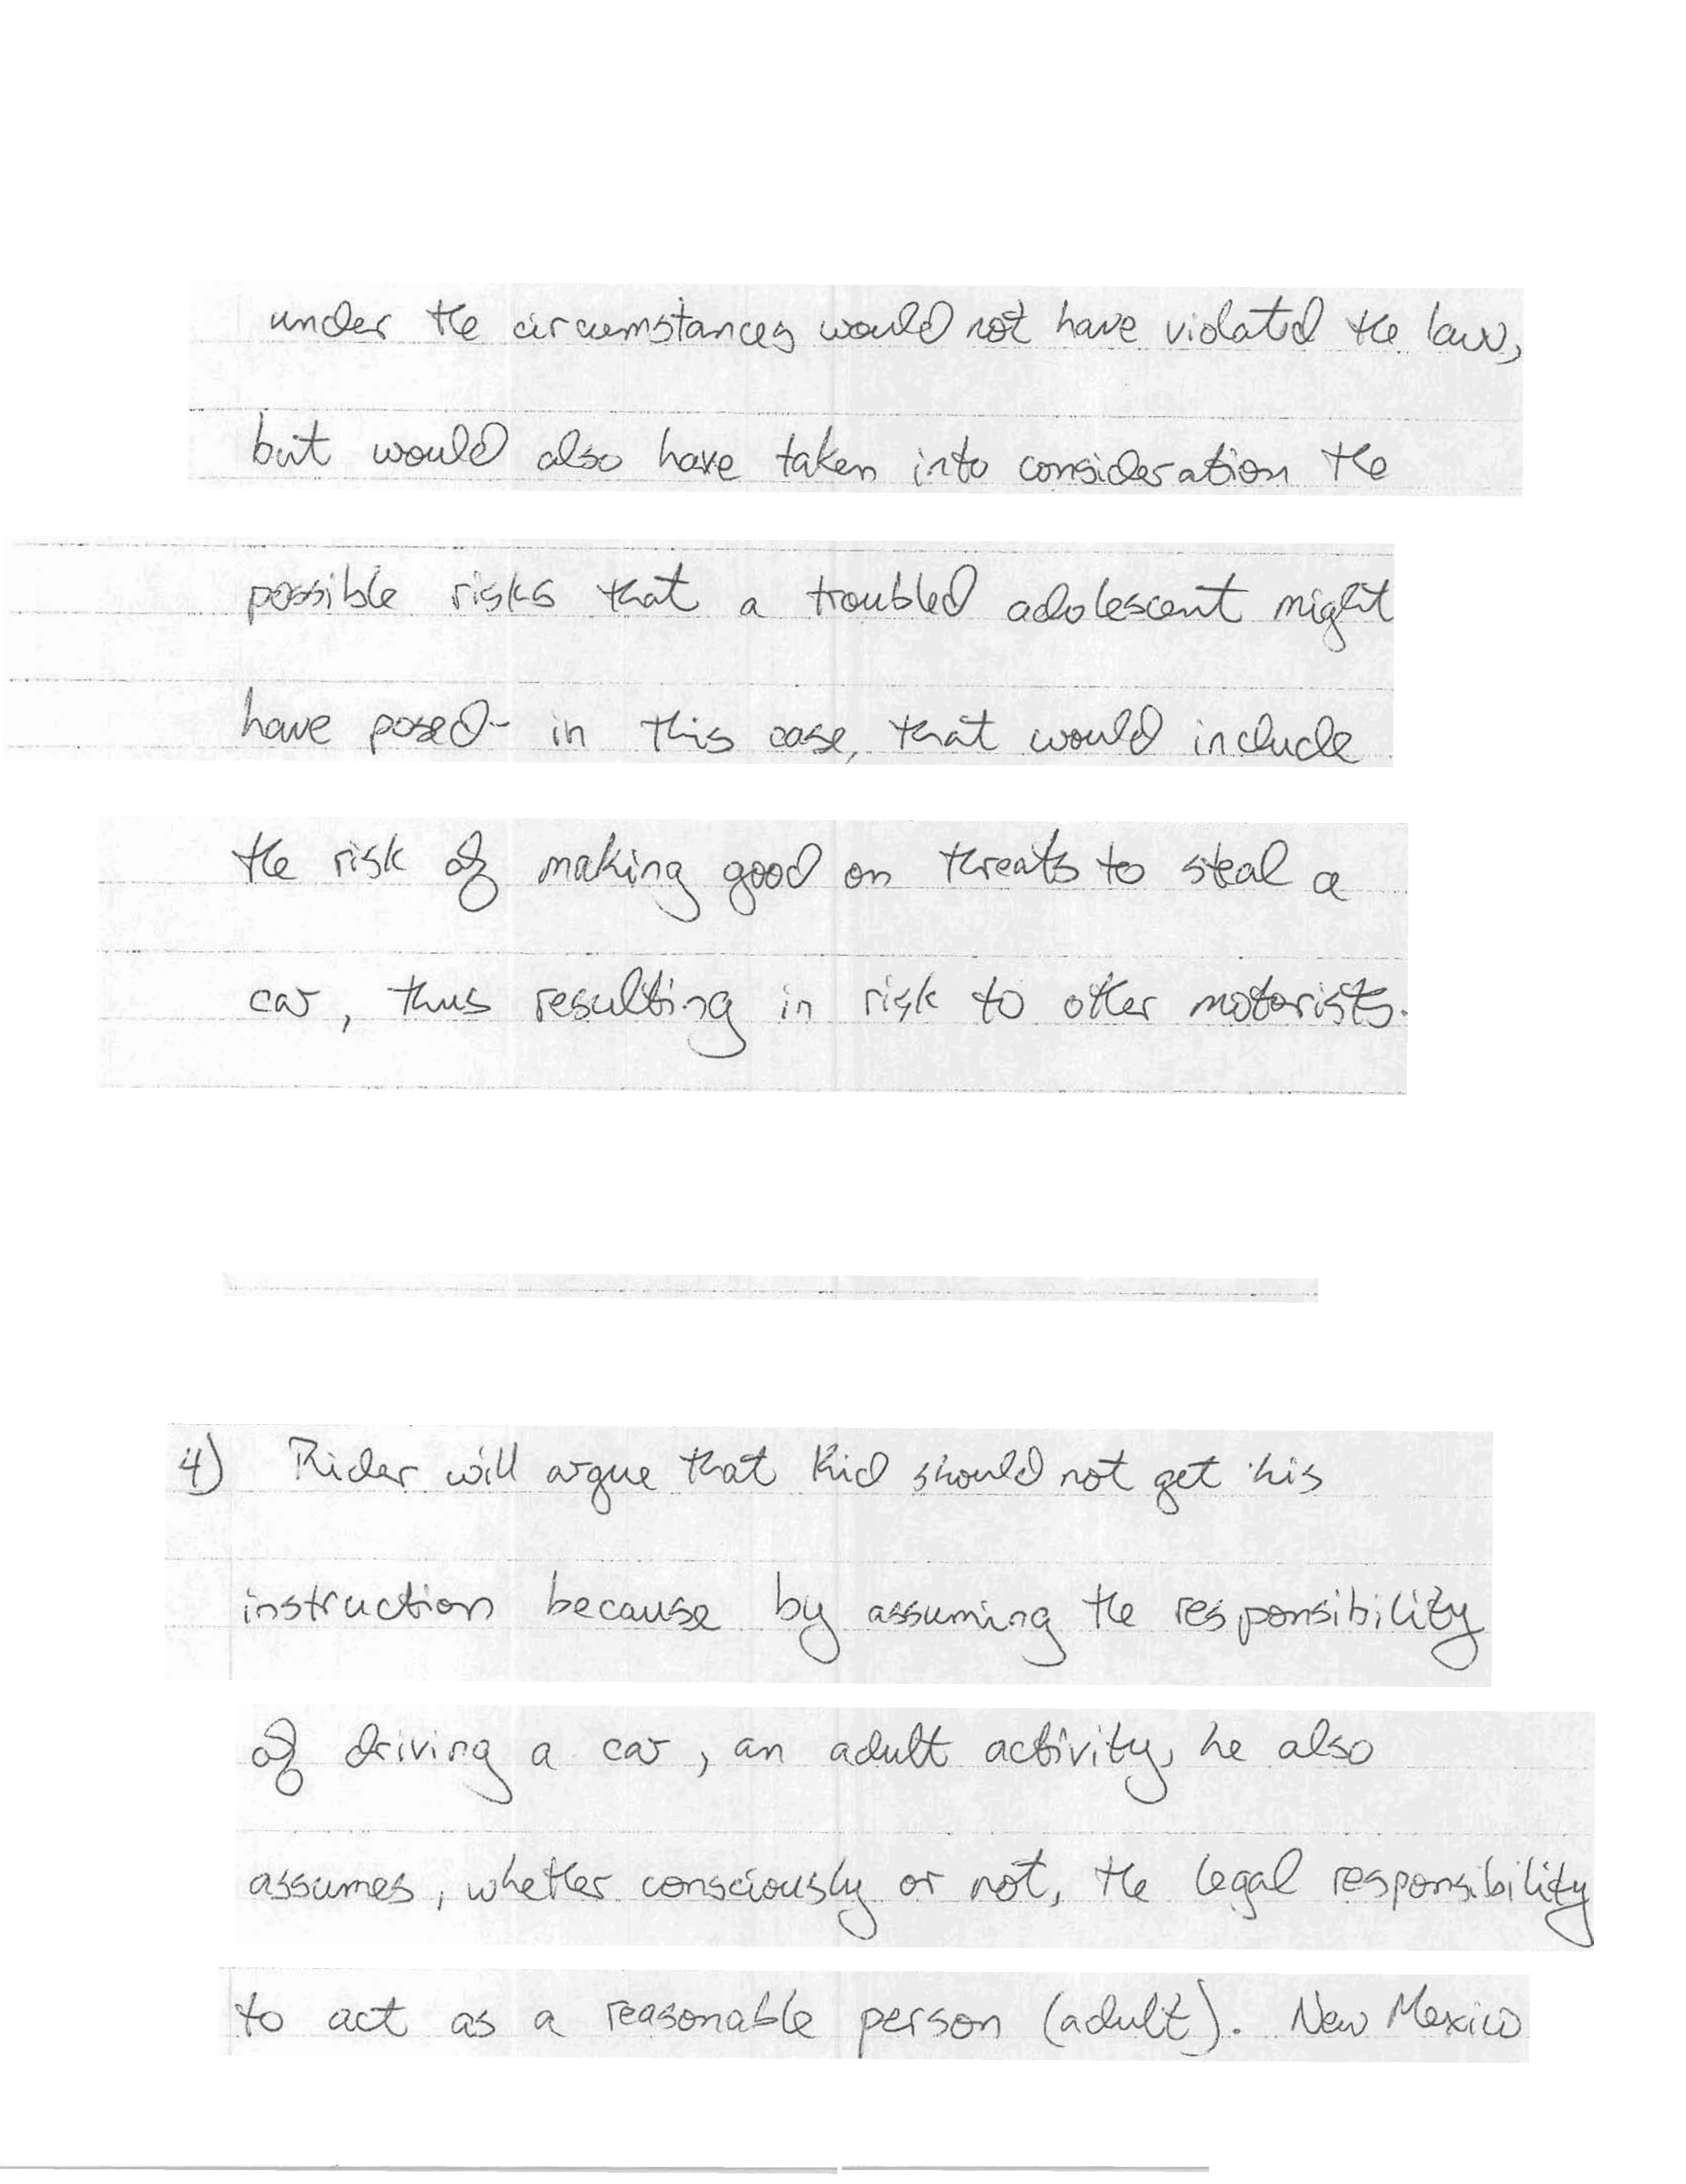 under the circumstances would not have violated the law,
but would also have taken into consideration the
possible risks that a troubled adolescent might
have posed- in this case, that would include
the risk of making good on threats to steal a
car, thus resulting in risk to other motorists.
4) Rider will argue that Kid should not get his
instruction because by assuming the responsibility
of driving a car, an adult activity, he also
assumes, whether consciously or not, the legal responsibility
to act as a reasonable person (adult). New Mexico